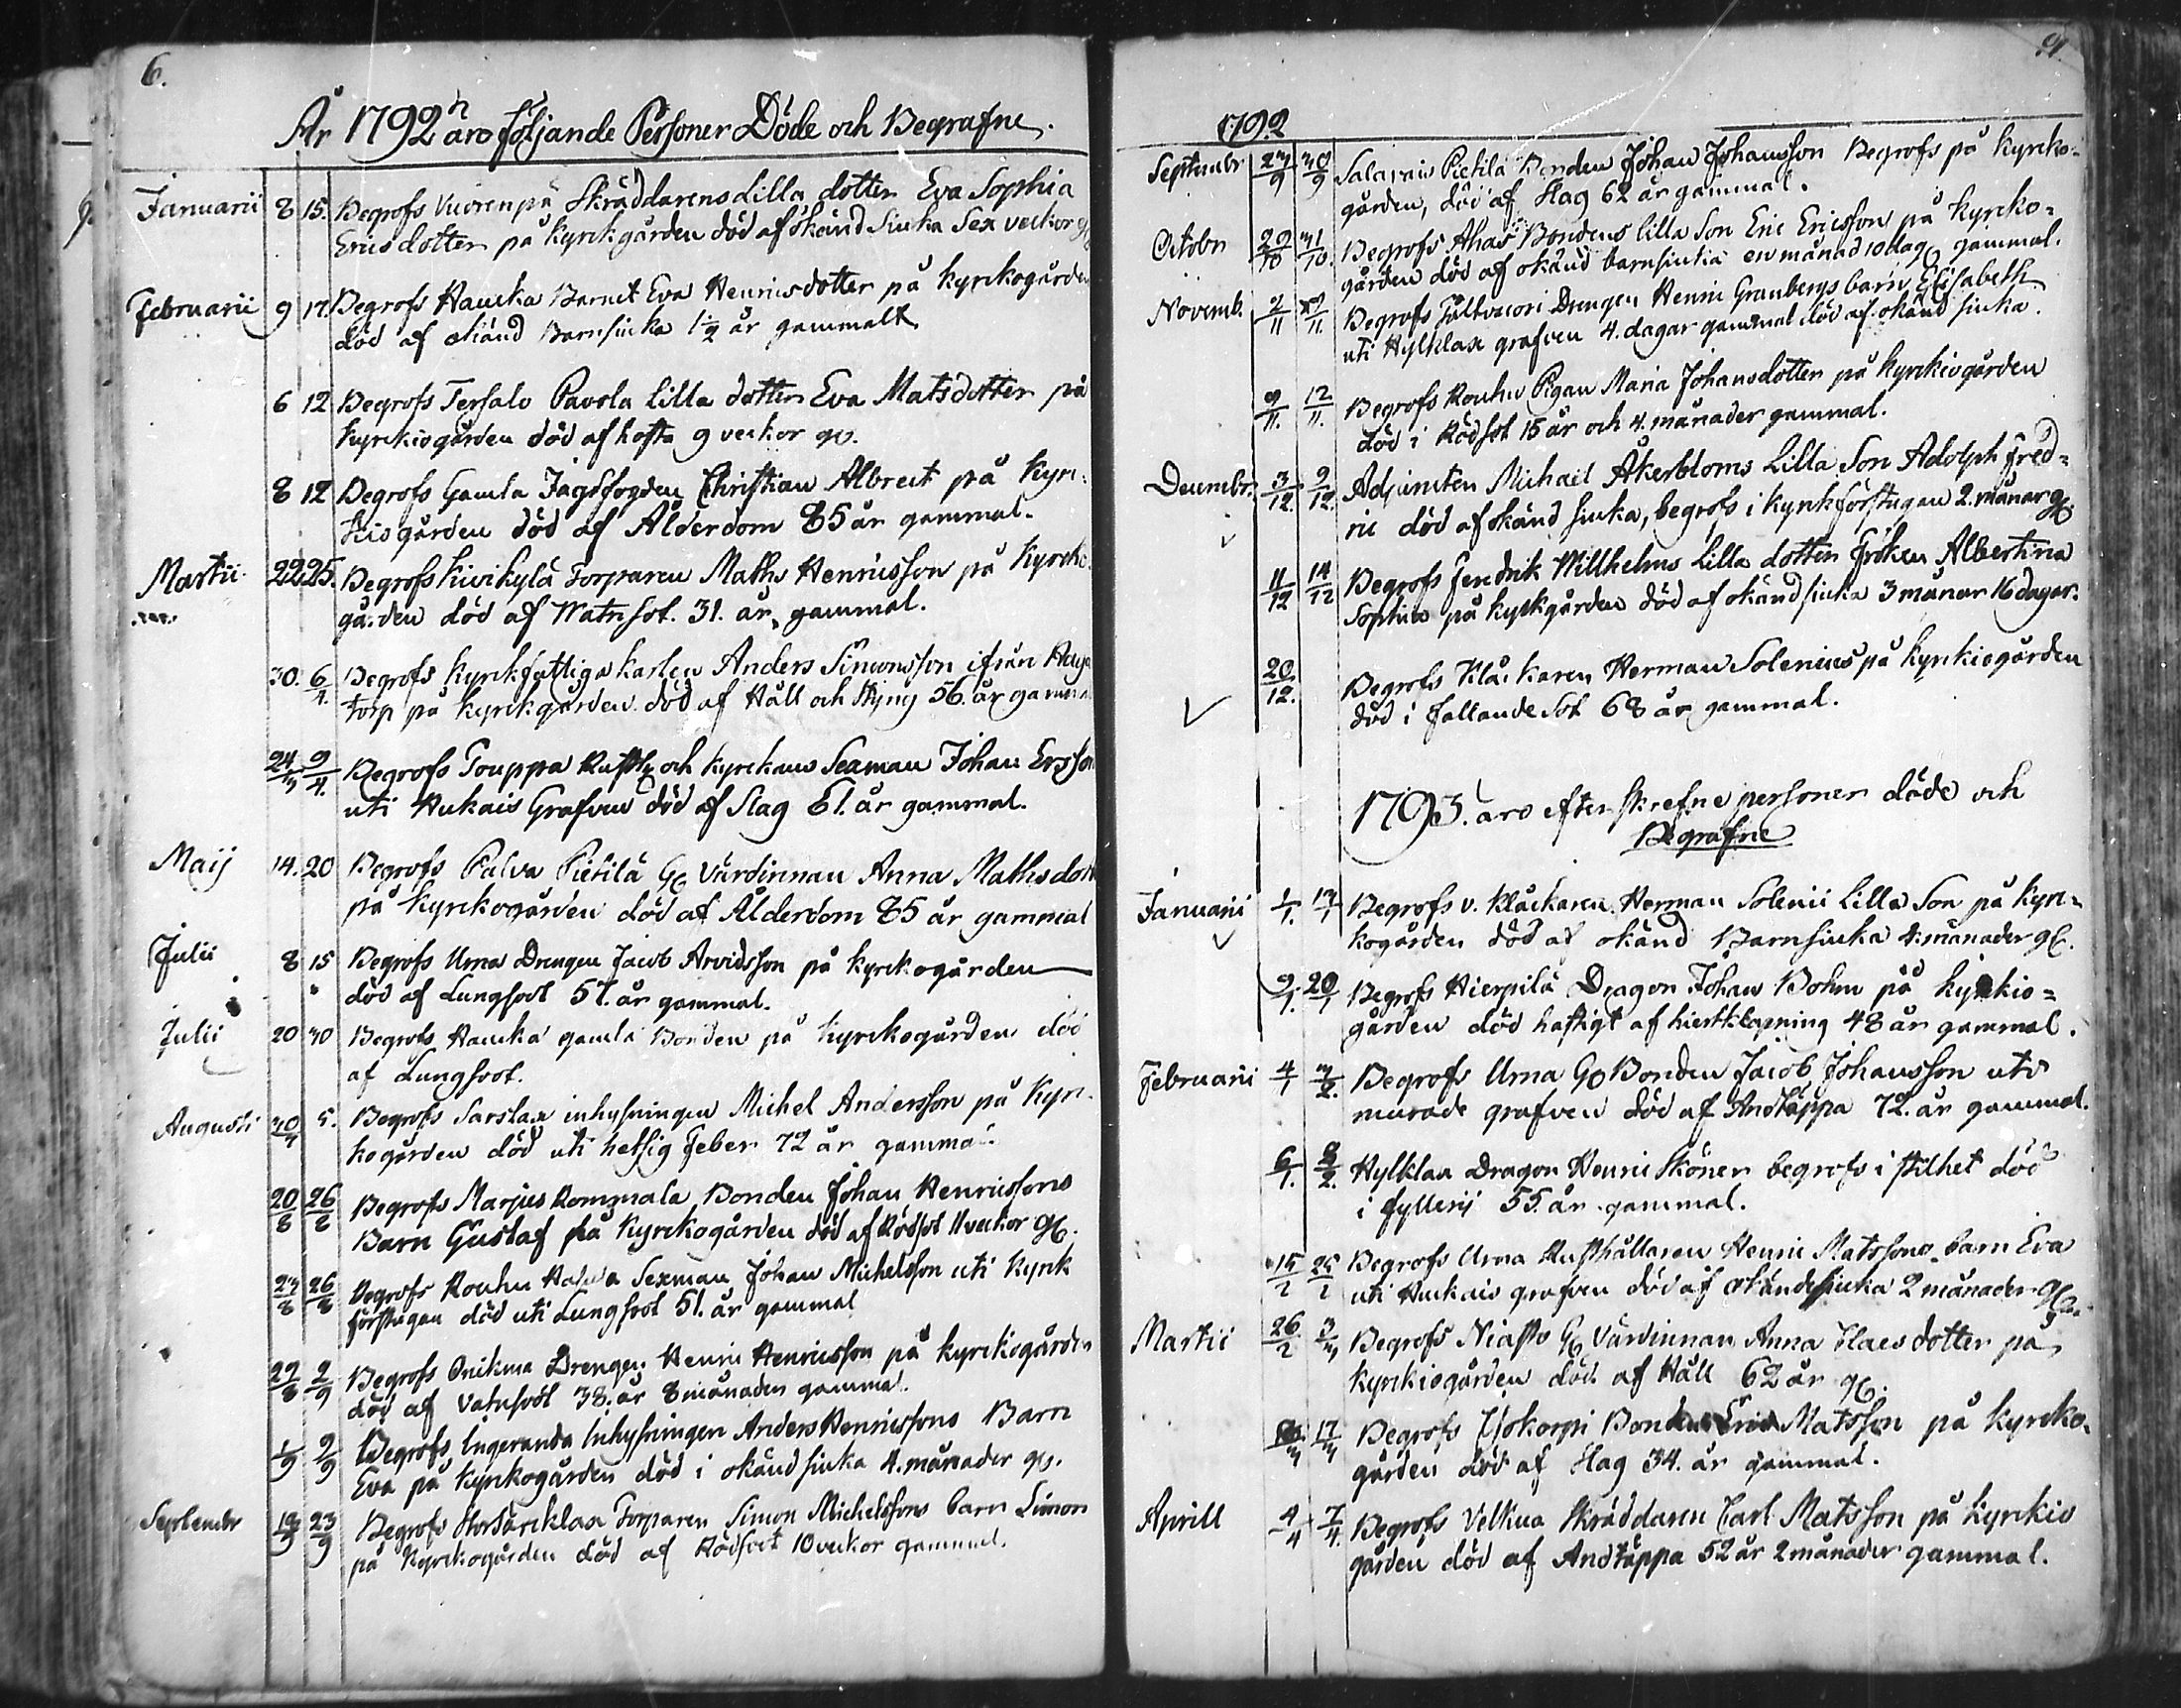 6.
År 1792 äro följande Personer Döde och Begrafne.
Januarii 8 15. Begrofs Vuorenpä Skräddarens Lilla dotter Eva Sophia
Ericsdotter på Kyrckgården död af okänd Siuka Sex veckor gl
Februarii 9 17. Begrofs Haucka Barnet Eva Henricsdotter på Kyrckogården
död af okänd Barnsiuka 1 1/2 år gammalt.
6 12 Begrofs Tersalo Pavola Lilla dotter Eva Matsdotter på
Kyrckiogården död af hosta 9 veckor gl.
8 12 Begrofs Gamla Jagdfogden Christian Albrect på Kyrc-
kiogården död af Ålderdom 85 år gammal.
Martii 22 25. Begrofs Kivikylä Torparen Maths Henricsson på Kyrcko
gården död af Watnsot. 31. år gammal.
30. 6/4. Begrofs Kyrckfattiga karlen Anders Simonsson ifrån Haga
torp på Kyrckgården död af Håll och Styng 56. år gamma
24/3 9/4. Begrofs Touppa Rusth: och Kyrckans Sexman Johan Ersson
uti Hukais Grafven död af Slag 61. år gammal.
Maij 14. 20 Begrofs Palva Pietilä Gl Värdinnan Anna Mathsdott
på Kyrckogården död af Ålderdom 85 år gammal
Julii 8 15 Begrofs Urna Drengen Jacob Arvidsson på Kyrckogården
död af Lungsoot 57. år gammal.
Julii 20 30 Begrofs Haucka gamla Bonden på Kyrckogården död
af Lungsoot.
Augusti 30/7 5. Begrofs Sarslax inhysningen Michel Andersson på Kyrc-
kogården död uti hetsig Feber 72 år gammal.
20/8 26/8 Begrofs Marjus Rommala Bonden Johan Henricssons
Barn Gustaf på Kyrckogården död af Rödsot 11 veckor gl.
23/8 26/8 Begrofs Rouhu Sexman Johan Michelsson uti Kyrck
förstugan död uti Lungsoot 51. år gammal
29/8 2/9 Begrofs Onikma Drengen Henric Henricsson på Kyrckiogården
död af Vatnsoot 38. år 8 månader gammal.
1/9 9/9 Begrofs Ingeranda Inhysningen Anders Henricssons Barn
Eva på Kyrckogården död i okänd siuka 4. månader gl.
Septembr 19/9 23/9 Begrofs Torparen Simon Michelssons barn Simon
på Kyrckogården död af Rödsoot 10 veckor gammal.
1792
Septembr 23/9 30/9 Salavais Pietilä Bonden Johan Johansson Begrofs på Kyrcko-
gården, död af Slag 62 år gammal.
Octobr 29/10 31/10. Begrofs Ahas Bondens lilla Son Eric Ericsson på Kyrcko-
gården död af okänd barnsiucka en månad 10 dag gammal.
Novemb. 2/11 /11. Begrofs Drengen Henric Granbergs barn Elisabeth
uti Hylklax grafven 4. dagar gammal död af okänd siuka.
9/11. 12/11. Begrofs Rouhu Pigan Maria Johansdotter på Kyrckiogården
död i Rödsot 15 år och 4. månader gammal.
Decembr. 3/12. 9/12. Adjuncten Michael Åkerbloms Lilla Son Adolph Fred-
ric död af okänd siuka, begrofs i Kyrckförstugan 2. månar gl.
11/12 14/12 Begrofs Fendrik Willhelms Lilla dotter Fröken Albertina
Sophia på Kyrkgården död af okänd siuka 3 månar 16 dagar.
20/12. Begrofs Klåckaren Herman Solenius på Kyrckiogården
död i fallande Sot 68 år gammal.
1793. äro efterskrefne personer döde och
Begrafne
Januarii 1/1. 13/1 Begrofs v. Klåckaren Herman Solenii Lilla Son på Kyrc-
kogården död af okänd Barnsiuka 4. månader gl.
9/1. 20/1 Begrofs Hierpilä Dragon Johan Bohm på Kyrckio-
gården död hastigt af hiertklapning 48 år gammal.
Februarii 4/1 3/2. Begrofs Urna Gl Bonden Jacob Johansson uti
murade grafven död af Andtäppa 72. år gammal.
6/1. 8/2. Hylklax Dragon Henric Sköner begrofs i stilhet död
i fylleri 55. år gammal.
15/2 25/2 Begrofs Urna Rusthållaren Henric Matssons barn Eva
uti Huckais grafven död af okänd siuka 2 månader gl
Martii 26/2 3/3 Begrofs Niasto Gl Värdinnan Anna Claesdotter på
Kyrckiogården död af Håll 62 år gl.
17/3 Begrofs Isokorpi Bonden Eric Matsson på Kyrcko-
gården död af Slag 34. år gammal.
Aprill 4/4 7/4. Begrofs Velkua Skräddaren Carl Matsson på Kyrckio
gården död af Andtäppa 52 år 2 månader gammal.